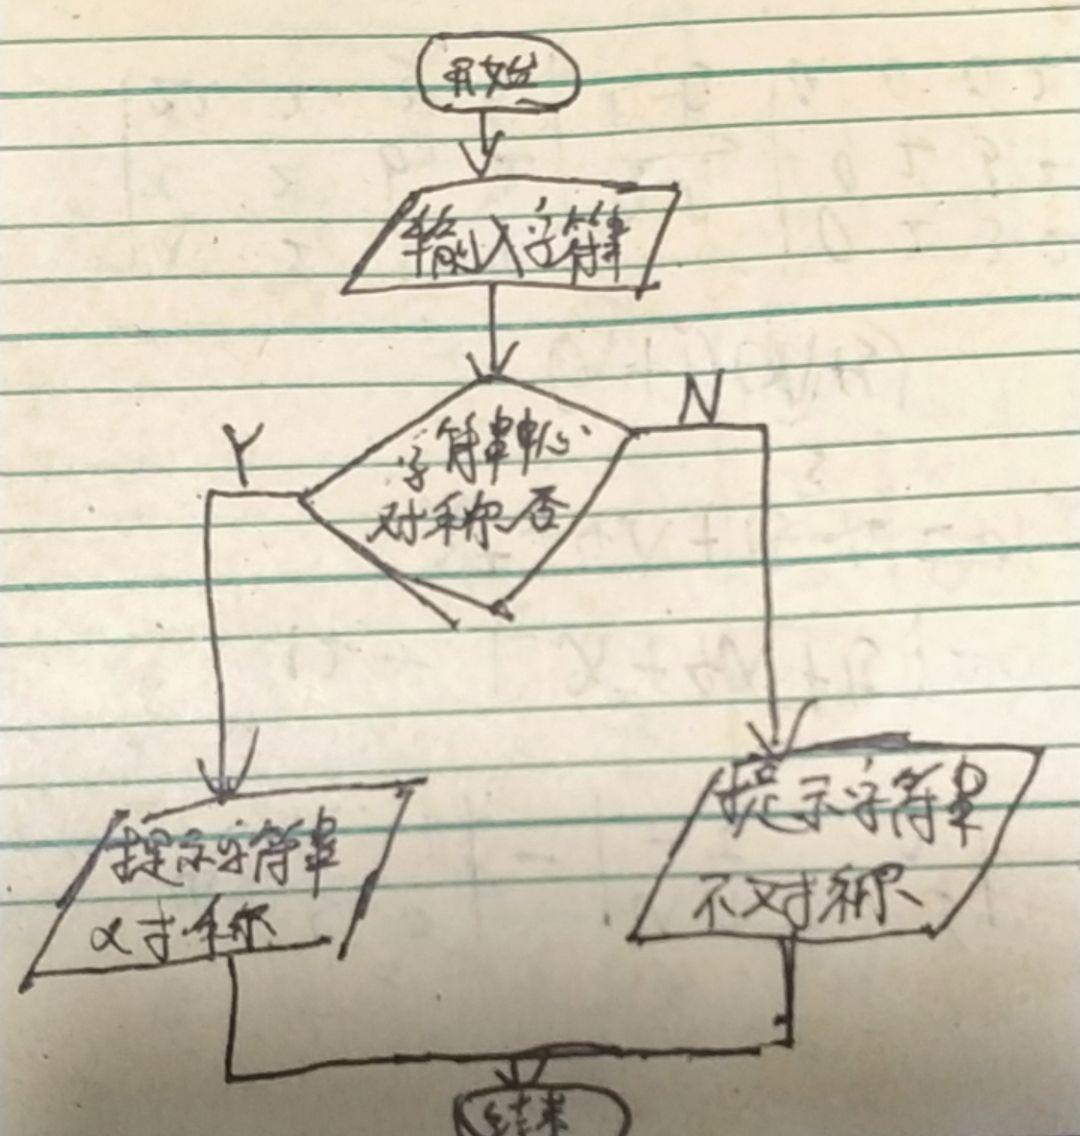 开始
输入字符串
N
Y
字符串中心
对称否
提示字符串
对称
提示字符串
不对称
结束